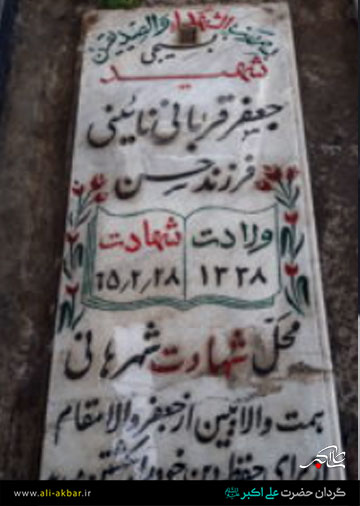 بسم رب الشهداء والصدیقین
بسیجی
شهید
جعفر قربانی نائینی
فرزند حسن
ولادت
۱۳۳۸
شهادت
۶۵/۲/۲۸
محل شهادت شرهانی
همت والا ببین از جعفر والا مقام
حفظ دین خود
علی اکبر
www.ali-akbar.ir
گردان حضرت علی اکبر